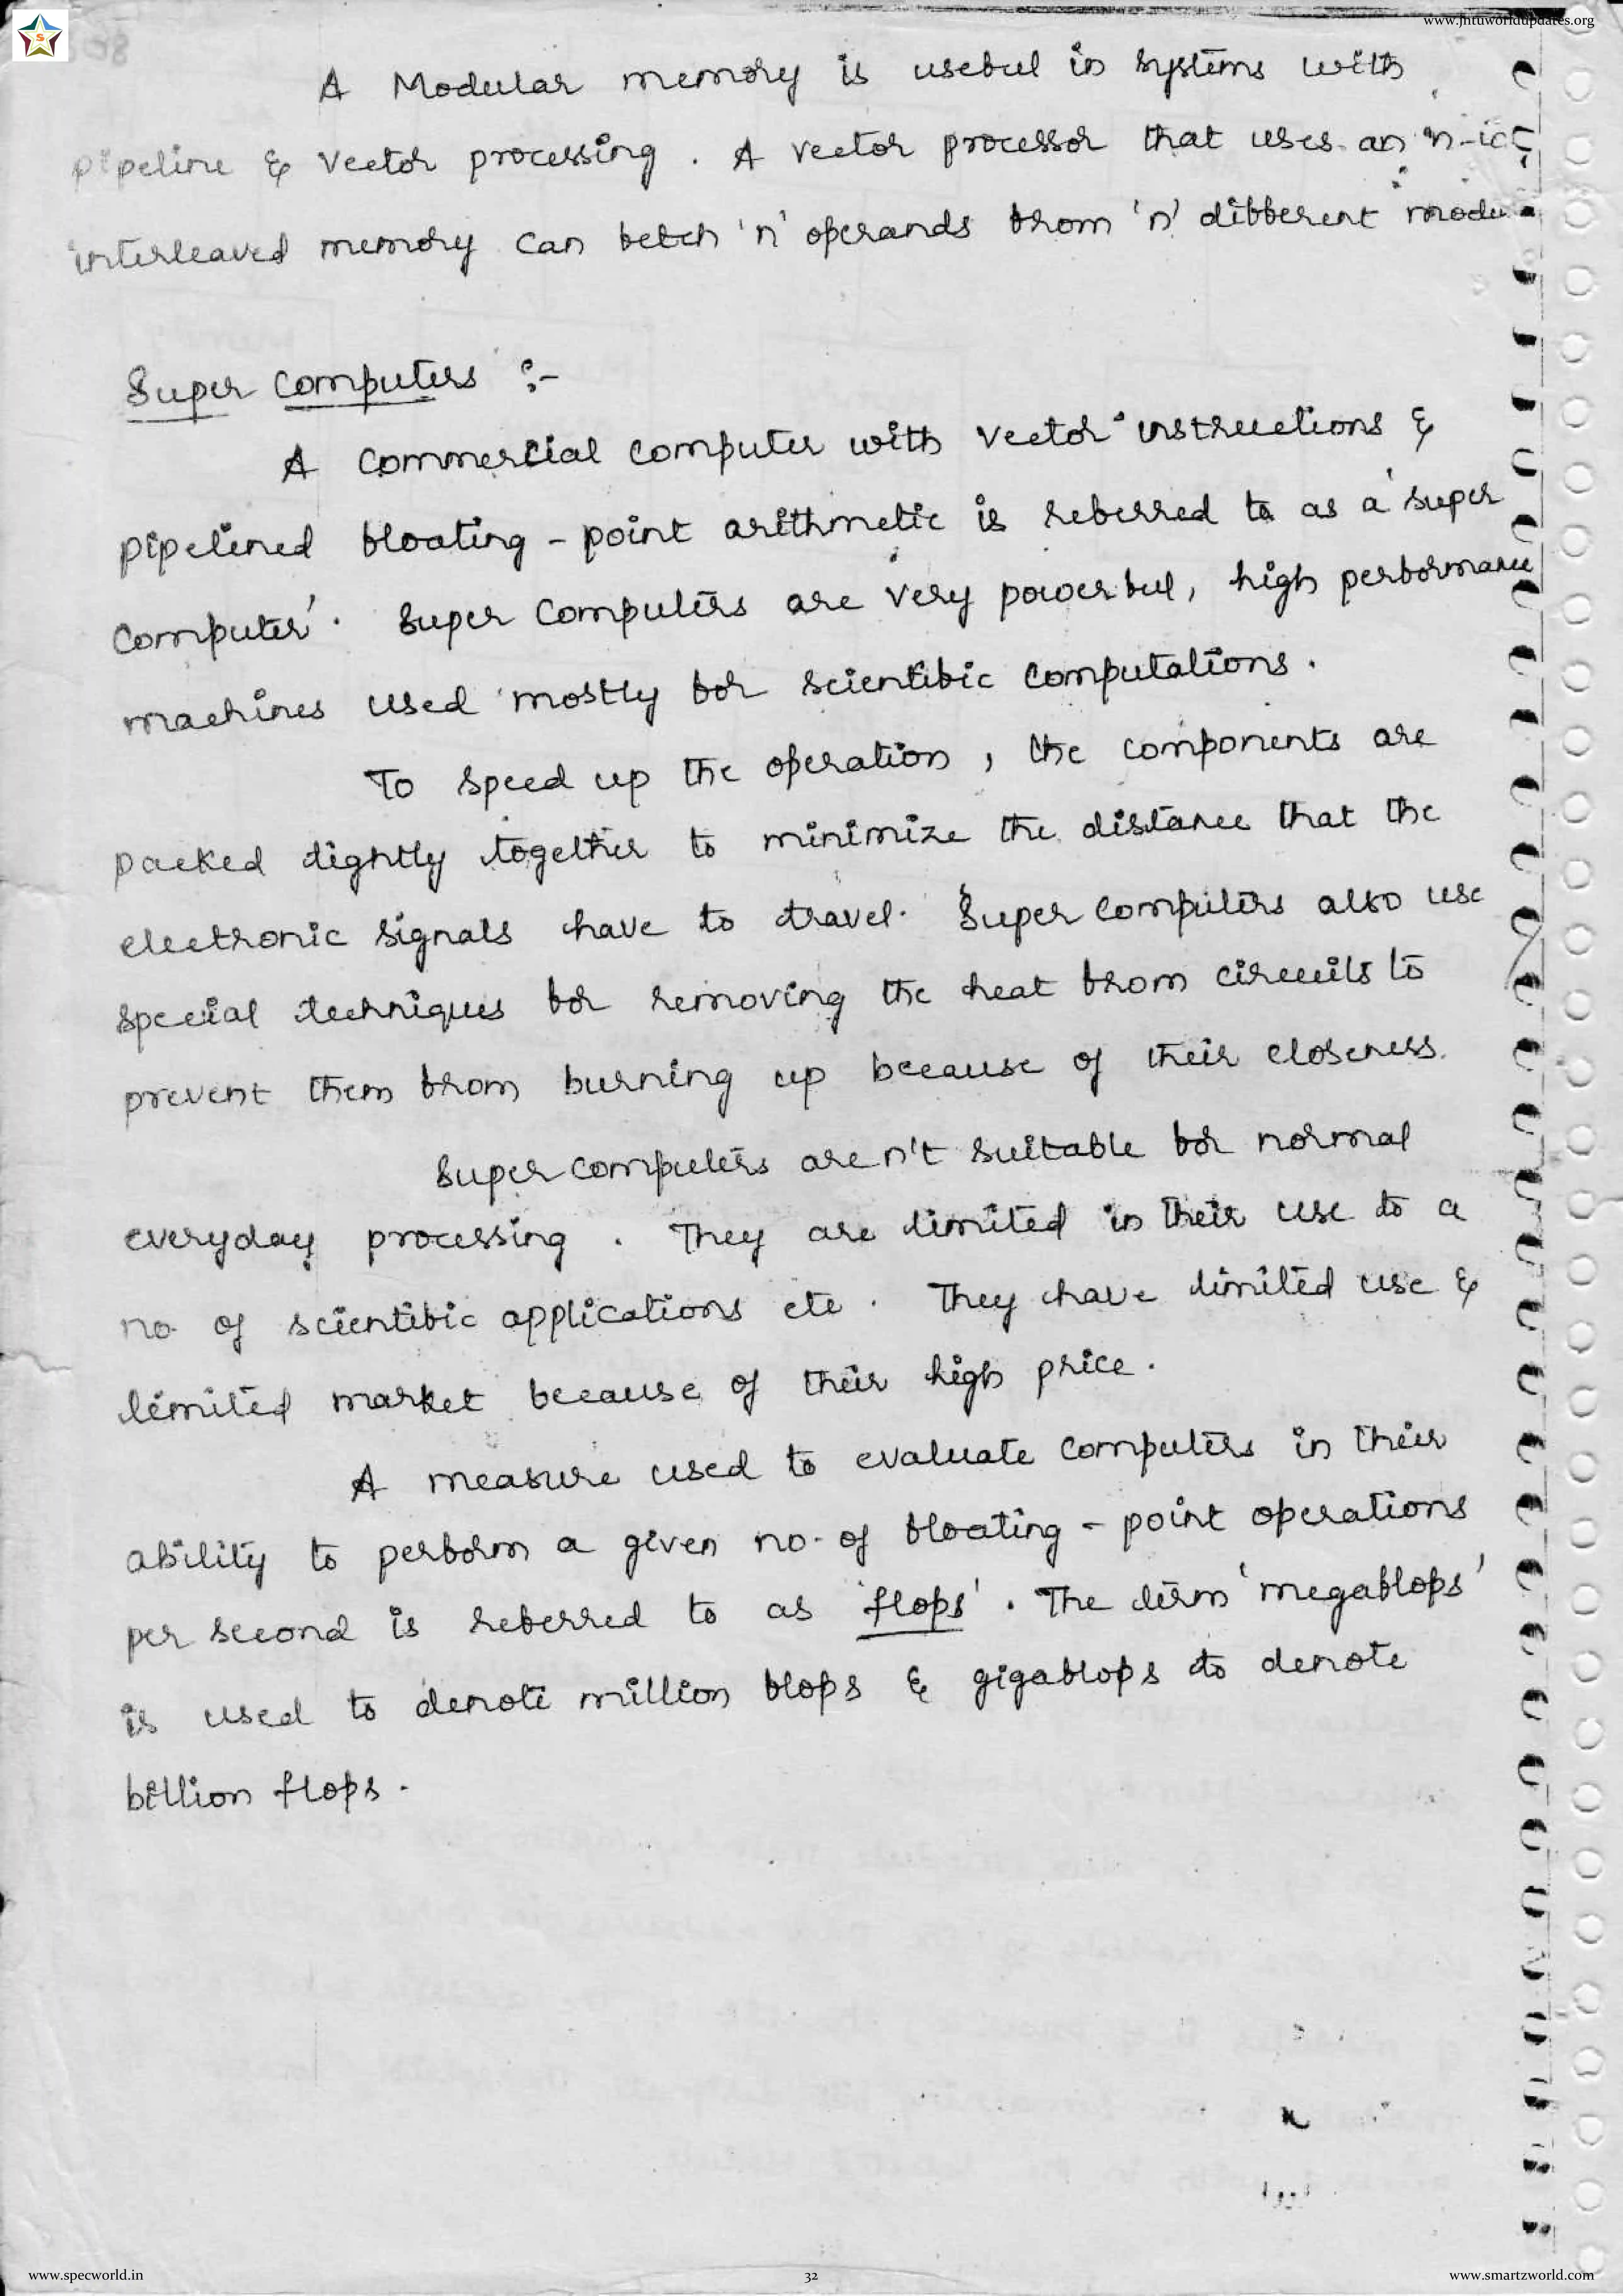 www.jntuworldupdates.org
S
A Modular memory is useful in systems with
pipeline & vector processing. A vector processor that uses an n-
interleaved memory can fetch 'n' operands from 'n' different
Super Computers :-
A commercial computer with vector instructions &
pipelined floating-point arithmetic is referred to as a 'super
Computer'. Super Computers are very powerful, high performance
machines used mostly for scientific computations.
To speed up the operation, the components are
packed tightly together to minimize the distance that the
electronic signals have to travel. Super computers also use
special techniques for removing the heat from circuits to
prevent them from burning up because of their closeness.
Super computers aren't suitable for normal
everyday processing. They are limited in their use to a
no. of scientific applications etc. They have limited use &
limited market because of their high price.
A measure used to evaluate computers in their
ability to perform a given no. of floating-point operations
per second is referred to as 'flops'. The term 'megaflops'
is used to denote million flops & gigaflops to denote
billion flops.
www.specworld.in
32
www.smartzworld.com